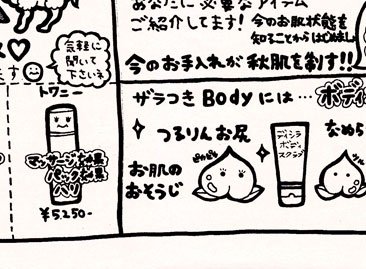 あなたに必要なアイテム
ご紹介してます!今のお肌状態を
知ることからはじめまし
今のお手入れが秋肌を制す!!
気軽に
聞いて
下さいネ
ます
トワニー
マッサージ効果
パック効果
ハリ
¥5,250-
ザラつきBodyには…ボディ
つるりんお尻
なめら
ピカピカ
お肌の
おそうじ
デイシラ
ボディ
スクラブ
ツル